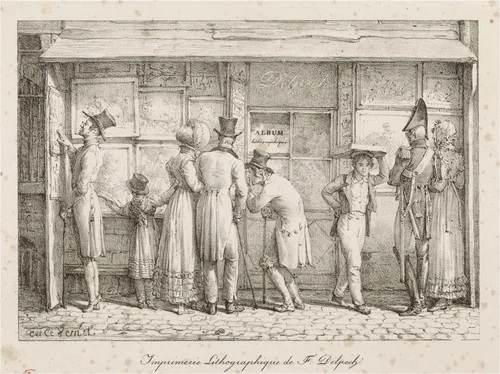 Delpech
ALBUM
lithographique
Carle Vernet
Imprimerie Lithographique de F. Delpech